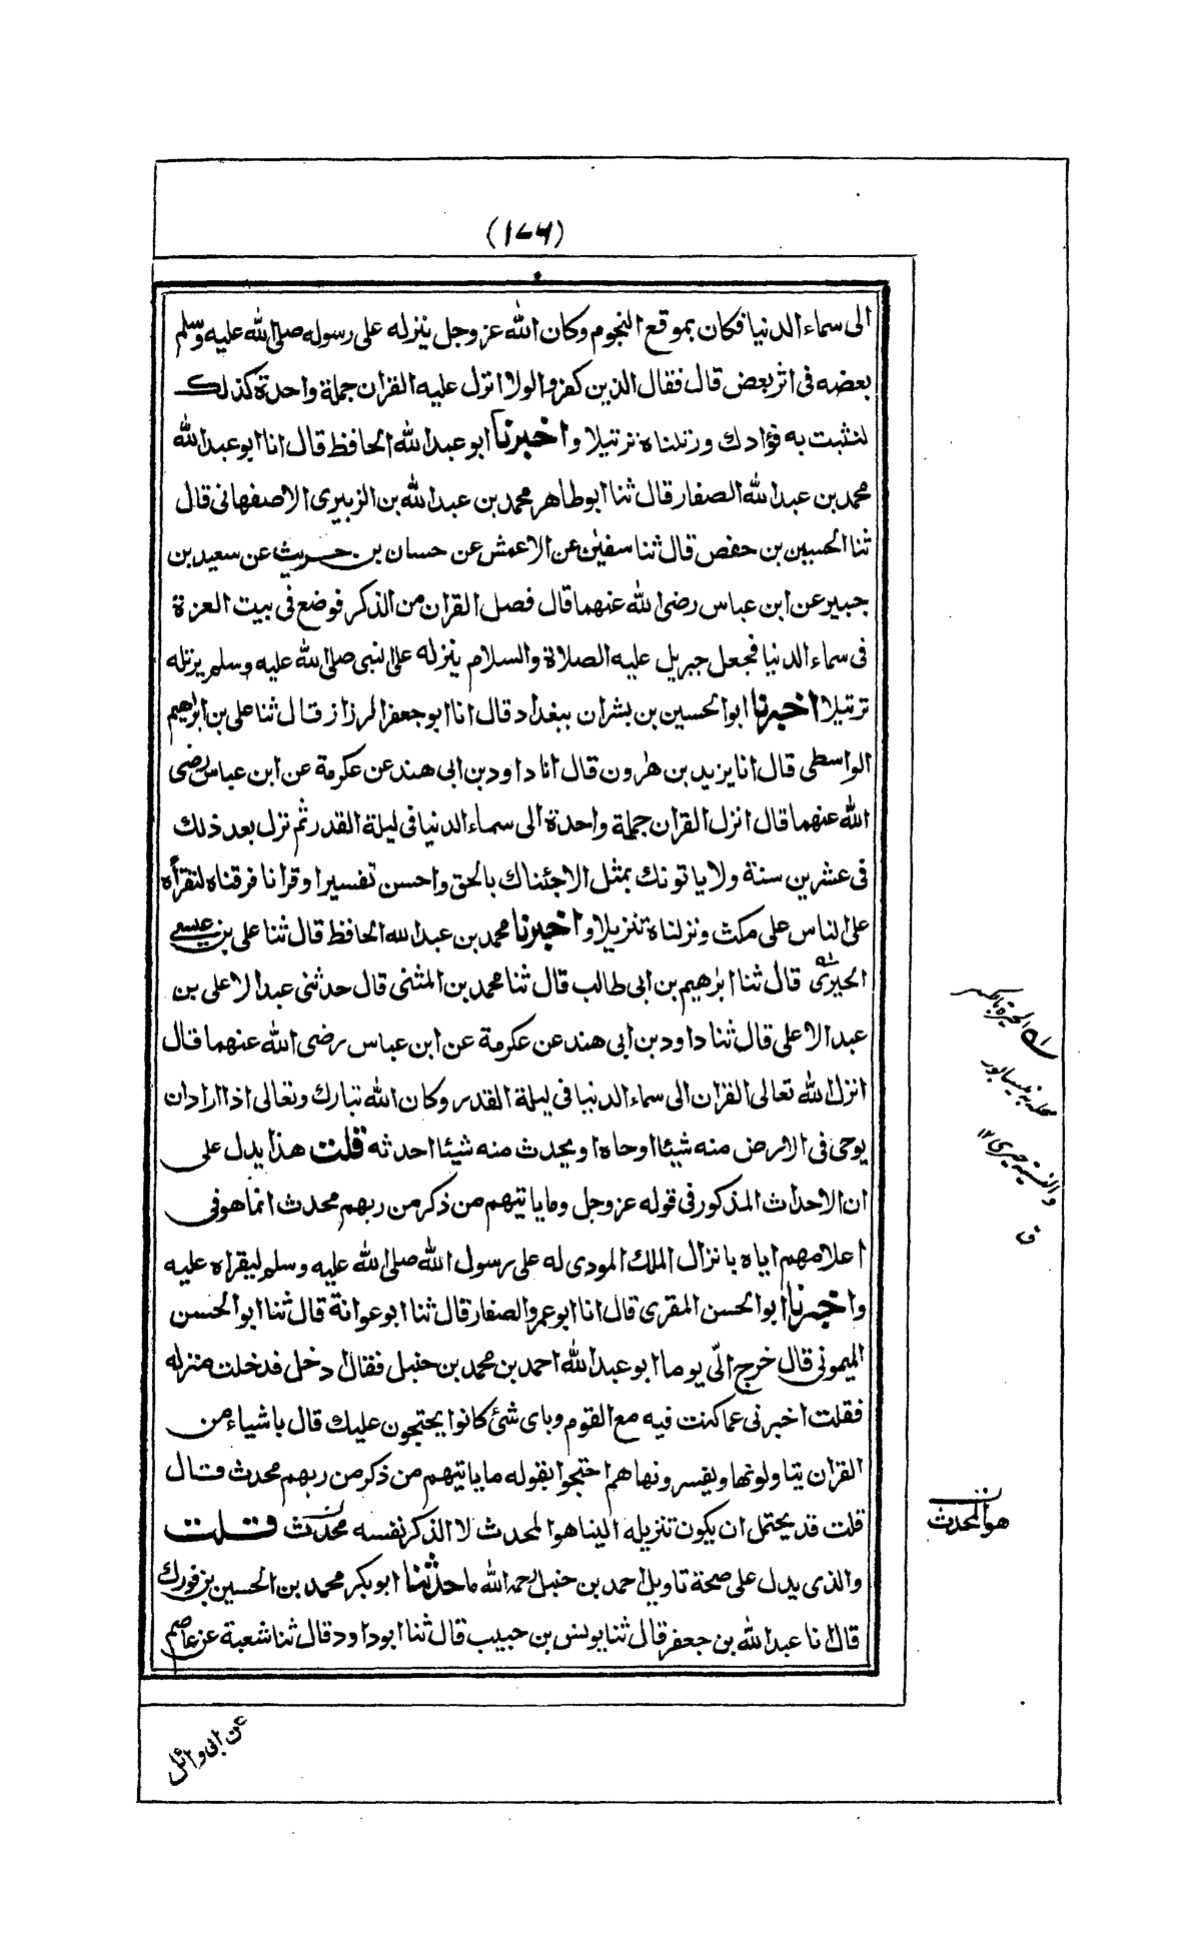 (١٧٦)
الى سماء الدنيا فكان بموقع النجوم وكان الله عز وجل ينزله على رسوله صلى الله عليه وسلم
بعضه فى اثر بعض قال فقال الذين كفروا لولا انزل عليه القران جملة واحدة كذلك
لنثبت به فؤادك ورتلناه ترتيلا واخبرنا ابو عبد الله الحافظ قال انا ابو عبد الله
محمد بن عبد الله الصفار قال ثنا ابو طاهر محمد بن عبد الله بن الزبيرى الاصفهانى قال
ثنا الحسين بن حفص قال ثنا سفيٰن عن الاعمش عن حسان بن حريث عن سعيد بن
جبير عن ابن عباس رضى الله عنهما قال فصل القران من الذكر فوضع فى بيت العزة
فى سماء الدنيا فجعل جبريل عليه الصلاة والسلام ينزله على النبى صلى الله عليه وسلم يرتله
ترتيلا اخبرنا ابو الحسين بن بشران ببغداد قال انا ابو جعفر الرزاز قال ثنا على بن ابرٰهيم
الواسطى قال انا يزيد بن هٰرون قال انا داود بن ابى هند عن عكرمة عن ابن عباس رضى
الله عنهما قال انزل القران جملة واحدة الى سماء الدنيا فى ليلة القدر ثم نزل بعد ذلك
فى عشرين سنة ولا ياتونك بمثل الا جئناك بالحق واحسن تفسيرا وقرانا فرقناه لتقرأه
على الناس على مكث ونزلناه تنزيلا واخبرنا محمد بن عبد الله الحافظ قال ثنا على بن عيسى
الحيرى قال ثنا ابرٰهيم بن ابى طالب قال ثنا محمد بن المثنى قال حدثنى عبد الاعلى بن
عبد الاعلى قال ثنا داود بن ابى هند عن عكرمة عن ابن عباس رضى الله عنهما قال
انزل الله تعالى القران الى سماء الدنيا فى ليلة القدر وكان الله تبارك وتعالى اذا اراد ان
يوحى فى الارض منه شيئا اوحاه او يحدث منه شيئا احدثه قلت هذا يدل على
ان الاحداث المذكور فى قوله عز وجل وما ياتيهم من ذكر من ربهم محدث انما هو فى
اعلامهم اياه بانزال الملك المودى له على رسول الله صلى الله عليه وسلم ليقراه عليه
واخبرنا ابو الحسن المقرى قال انا ابو عمرو الصفار قال ثنا ابو عوانة قال ثنا ابو الحسن
الميمونى قال خرج الىّ يوما ابو عبد الله احمد بن محمد بن حنبل فقال ادخل فدخلت منزله
فقلت اخبرنى عما كنت فيه مع القوم وباى شئ كانوا يحتجون عليك قال باشياء من
القران يتاولونها ويفسرونها هم احتجوا بقوله ما ياتيهم من ذكر من ربهم محدث قال
قلت قد يحتمل ان يكون تنزيله الينا هو المحدث لا الذكر نفسه محدث قلت
والذى يدل على صحة تاويل احمد بن حنبل رحمه الله ما حدثنا ابو بكر محمد بن الحسين بن فورك
قال انا عبد الله بن جعفر قال ثنا يونس بن حبيب قال ثنا ابو داود قال ثنا شعبة عن عاصم
الحيرة بالكسر
محلة بنيسابور
والنسبة حيرى ١٢
ق
هو المحدث
عن ابى وائل